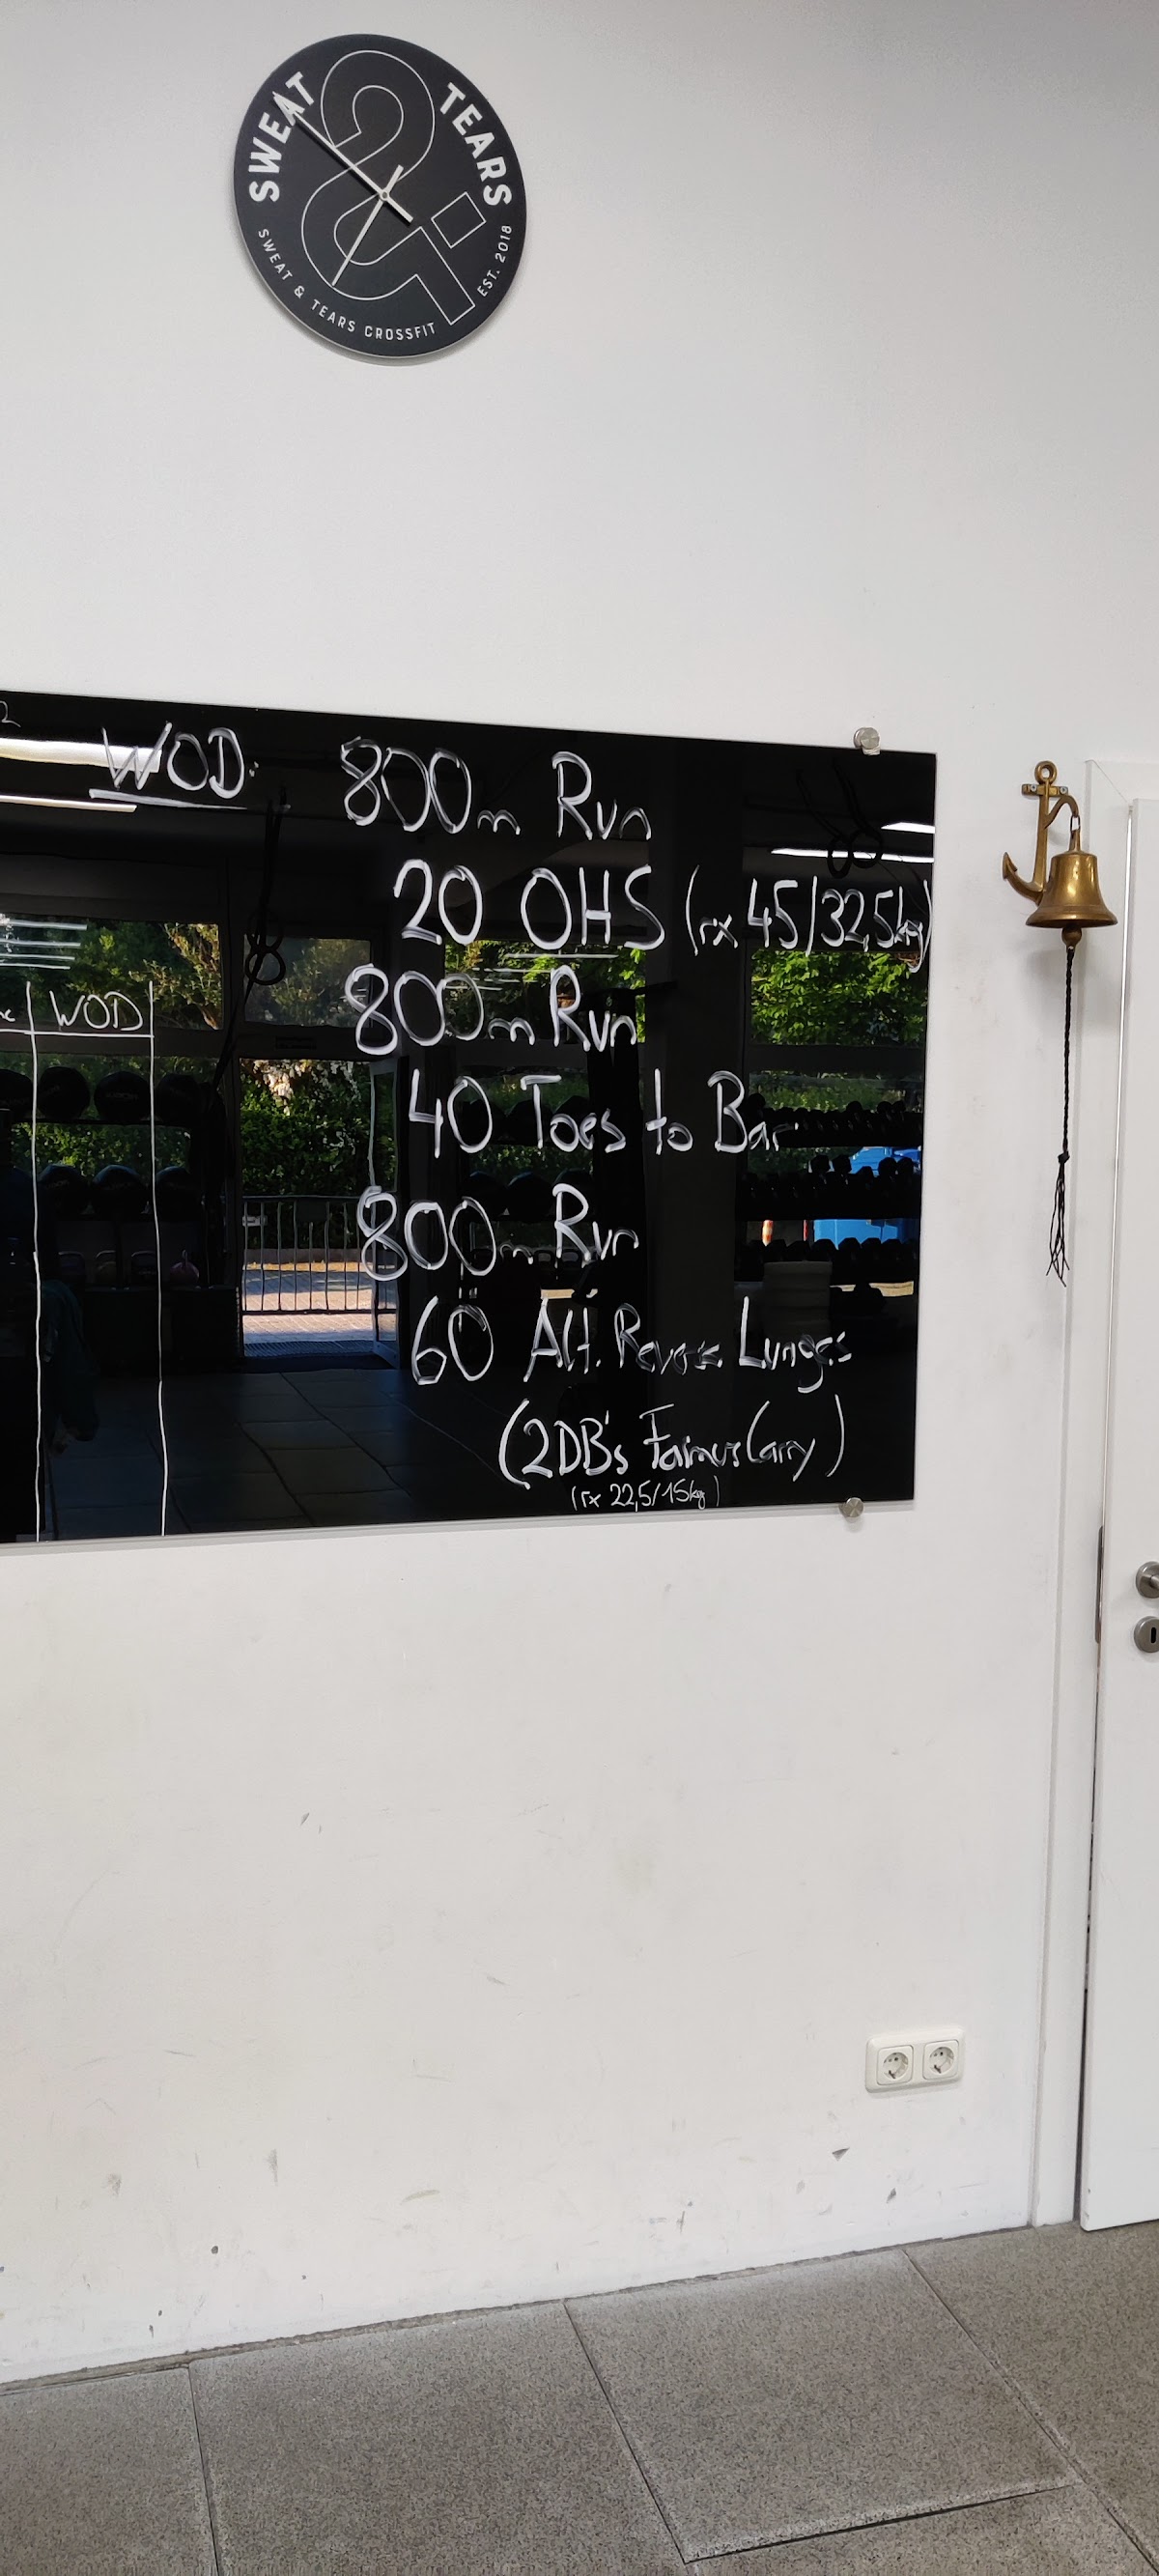 SWEAT
TEARS
SWEAT & TEARS CROSSFIT
EST. 2018
WOD:
800m Run
20 OHS (rx 45/32,5kg)
800m Run
WOD
40 Toes to Bar
800m Run
60 Alt. Reverse Lunges
(2DB's Farmers Carry)
(rx 22,5/15kg)